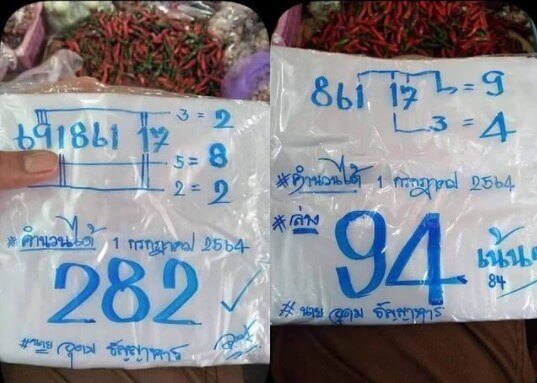 3 = 2
691861 17
5 = 8
2 = 2
#คำนวนได้ 1 กรกฎาคม 2564
282
#นาย อุดม ธัญญาหาร
861 17 = 9
3 = 4
#คำนวนได้ 1 กรกฎาคม 2564
#ล่าง
94
เน้น
84
#นาย อุดม ธัญญาหาร